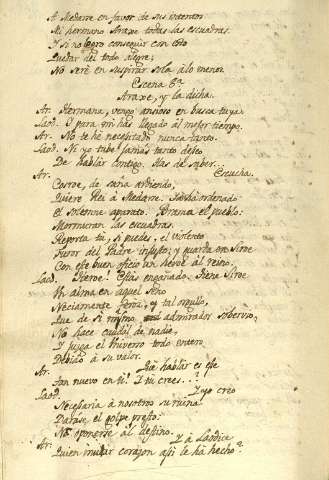 A Medarse en favor de sus intentos
Mi hermano Araxe todas las escuadras.
Y si no logro conseguir con esto
Quedar del todo alegre,
No seré en suspirar sola a lo menos.
Escena 6ª
Araxe, y la dicha.
Ar. Hermana, vengo ansioso en busca tuya.
Laod. O para mí has llegado al mejor tiempo.
Ar. No te he necesitado nunca tanto.
Laod. Ni yo tube jamás tanto deseo
De hablar contigo. Has de saber...
Ar. Escucha.
Cosroe, de saña ardiendo,
Quiere Rei a Medarse. Ha ordenado
El solemne aparato. Brama el pueblo:
Murmuran las escuadras.
Reporta tú, si puedes, el violento
Furor del Padre injusto, y guarda en Siroe
Con ese buen oficio un heroe al reino.
Laod. Heroe? Estás engañado. Tiene Siroe
Un alma en aquel seno
Neciamente feroz, y tal orgullo,
Que de sí mismo admirador soberbio,
No hace caudal de nadie,
Y juzga el Universo todo entero
Debido a su valor.
Ar. Qué hablar es ese
Tan nuevo en ti! I tú crees...?
Laod. I yo creo
Necesaria a nosotros su ruina
Parase el golpe presto:
No oponerse al destino.
Ar. I a Laodice
Quien mudar corazon asi le ha hecho?